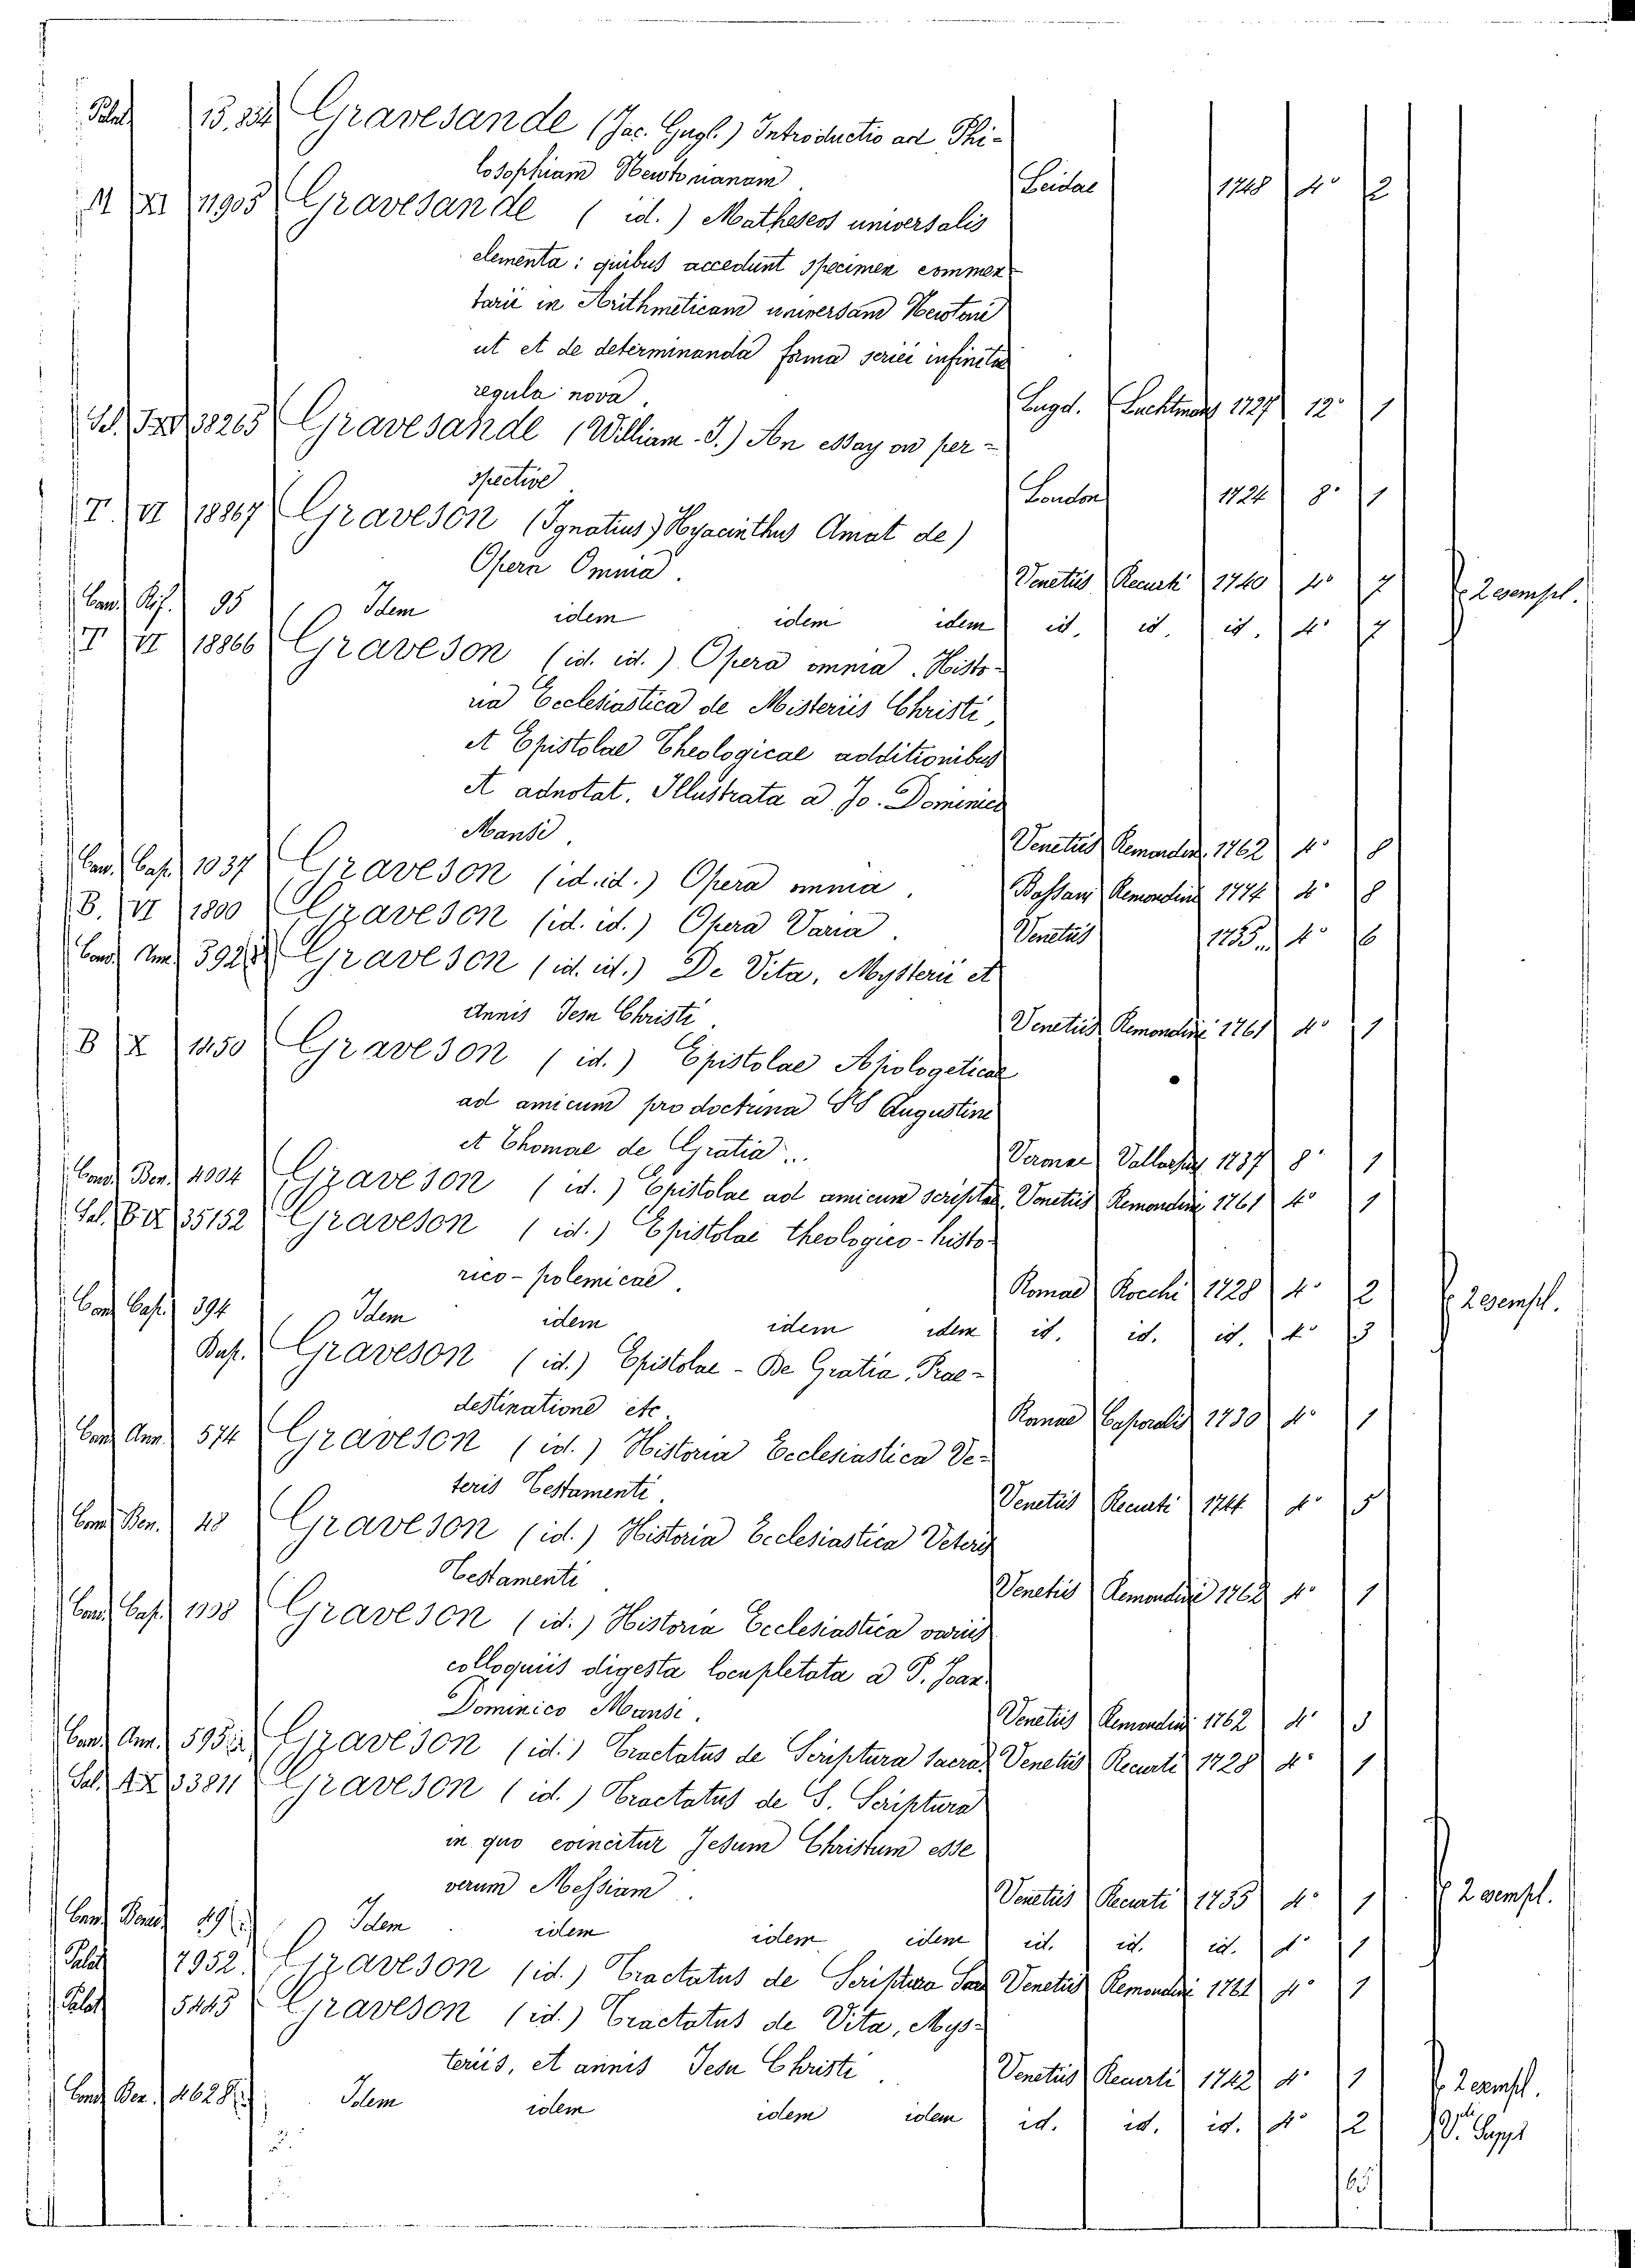 Palat. 13.334 Gravesande (Jac. Gugl.) Introductio ad Phi-
losophiam Newtonianam Leidae 1748 4° 2
M XI 11905 Gravesande ( id. ) Matheseos universalis
elementa: quibus accedunt specimen commen-
tarii in Arithmeticam universam Newtoni
ut et de determinanda forma seriei infinitae
regula nova. Lugd. Luchtmans 1727 12° 1
38265 Gravesande (William-J.) An essay on per-
spective London 1724 8° 1
T. VI 18867 Graveson (Ignatius Hyacinthus Amat de)
Opera Omnia. Venetiis Recurti 1740 4° 7 2 esempl.
Con. Rif. 95 Idem idem idem idem id. id. id. 4° 7
T VI 18866 Graveson (id. id.) Opera omnia. Histo-
ria Ecclesiastica de Misteriis Christi,
et Epistolae Theologicae additionibus
et adnotat. Illustrata a Jo. Dominico
Mansi. Venetiis Remondin. 1762 4° 8
Con. Cap. 1037 Graveson (id. id.) Opera omnia. Bassani Remondini 1774 4° 8
B. VI 1800 Graveson (id. id.) Opera Varia. Venetiis 1735 4° 6
Conv. Ann. 392 Graveson (id. id.) De Vita, Mysterii et
Annis Jesu Christi. Venetiis Remondini 1761 4° 1
B X 1450 Graveson ( id. ) Epistolae Apologeticae
ad amicum pro doctrina SS Augustini
et Thomae de Gratia... 1737 8° 1
Conv. Ben. 4004 Graveson ( id. ) Epistolae ad amicum scriptae. Venetiis Remondini 1761 4° 1
35152 Graveson ( id. ) Epistolae theologico-histo-
rico-polemicae. Romae Rocchi 1728 4° 2 2 esempl.
Conv. Cap. 394 Idem idem idem idem id. id. id. 4° 3
Graveson (id.) Epistolae - De Gratia, Prae-
destinatione etc. Romae Caporalis 1730 4° 1
Conv. Ann. 574 Graveson (id.) Historia Ecclesiastica Ve-
teris Testamenti. Venetiis Recurti 1744 4° 5
Conv. Ben. 48 Graveson (id.) Historia Ecclesiastica Veteris
Testamenti Venetiis Remondini 1762 4° 1
Conv. Cap. 1038 Graveson (id.) Historia Ecclesiastica variis
colloquiis digesta locupletata a P. Joan.
Dominico Mansi. Venetiis Remondini 1762 4° 3
Conv. Ann. 595 Graveson (id.) Tractatus de Scriptura Sacra. Venetiis Recurti 1728 4° 1
Sal. A X 33811 Graveson (id.) Tractatus de S. Scriptura
in quo evincitur Jesum Christum esse
verum Messiam. Venetiis Recurti 1735 4° 1 2 esempl.
Idem idem idem idem id. id. id. 4° 1
Palat 7952. Graveson (id.) Tractatus de Scriptura Venetiis Remondini 1761 4° 1
Palat 5445 Graveson (id.) Tractatus de Vita, Mys-
teriis, et annis Jesu Christi. Venetiis Recurti 1742 4° 1 2 esempl.
Conv. Ben. 4628 Idem idem idem idem id. id. id. 4° 2 V. Suppl
65